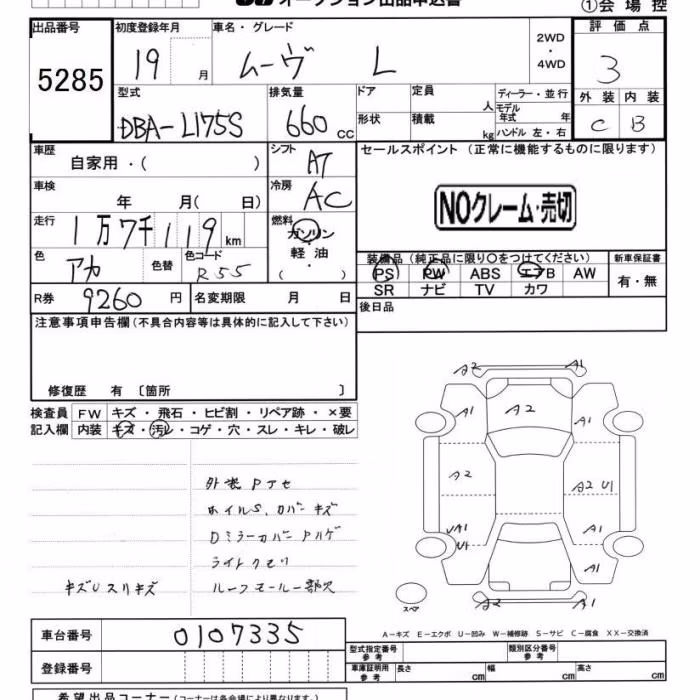 オークション出品申込書
①会場控
出品番号 初度登録年月 車名・グレード 2WD・4WD 評価点
5285 19 月 ムーヴ L 3
型式 排気量 ドア 定員 人 ディーラー・並行 外装 内装
DBA-L175S 660 cc 形状 積載 kg モデル年式 年 ハンドル 左・右 C B
車歴 自家用・( ) シフト AT セールスポイント (正常に機能するものに限ります)
車検 年 月( 日) 冷房 AC
NOクレーム・売切
走行 1万7千119km 燃料 ガソリン・軽油・( )
色 アカ 色替 色コード R55
装備品 (純正品に限り○をつけてください) 新車保証書
PS PW ABS エアB AW 有・無
SR ナビ TV カワ
R券 9260円 名変期限 月 日 後日品
注意事項申告欄(不具合内容等は具体的に記入して下さい)
修復歴 有〔箇所 〕
検査員 FW キズ・飛石・ヒビ割・リペア跡・×要
記入欄 内装 キズ・汚レ・コゲ・穴・スレ・キレ・破レ
A2 A1
A1 A2 A1
A2 A2 U1
UA1 A1
U1
A1
A2 A2
外装Pアセ
ホイルS、カバーキズ
Dミラーカバー Pハゲ
ライトクモリ
キズUスリキズ ルーフモール一部欠
スペア
A-キズ E-エクボ U-凹み W-補修跡 S-サビ C-腐食 XX-交換済
車台番号 0107335
型式指定番号 参考 類別区分番号 参考
登録番号 車庫証明用 参考 長さ cm 幅 cm 高さ cm
希望出品コーナー(コーナーは各会場により異なります。)